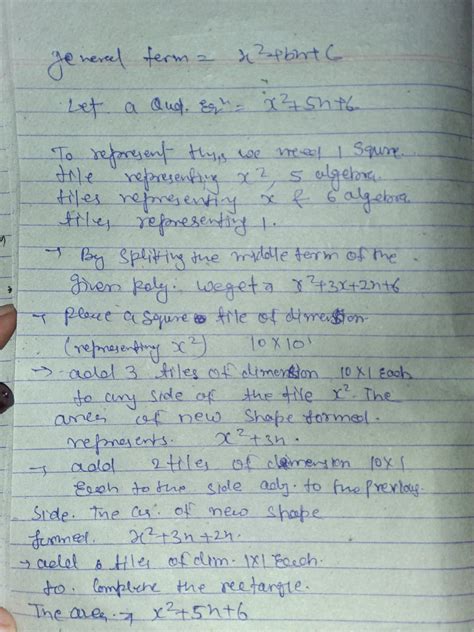 general term = x²+bx+6
Let a Quad. Eqⁿ = x²+5x+6
To represent this we need 1 Squre
tile representing x², 5 algebra
tiles representing x & 6 algebra
tiles representing 1.
→ By splitting the middle term of the
given poly. we get a x²+3x+2x+6
→ Place a square tile of dimension
(representing x²) 10×10
→ add 3 tiles of dimension 10×1 Each
to any side of the tile x². The
area of new shape formed.
represents. x²+3x.
→ add 2 tiles of dimension 10×1
Each to the side adj. to the previous
Side. The ar. of new shape
formed. x²+3x+2x.
→ add 6 tiles of dim. 1×1 Each.
to. Complete the rectangle.
The area → x²+5x+6